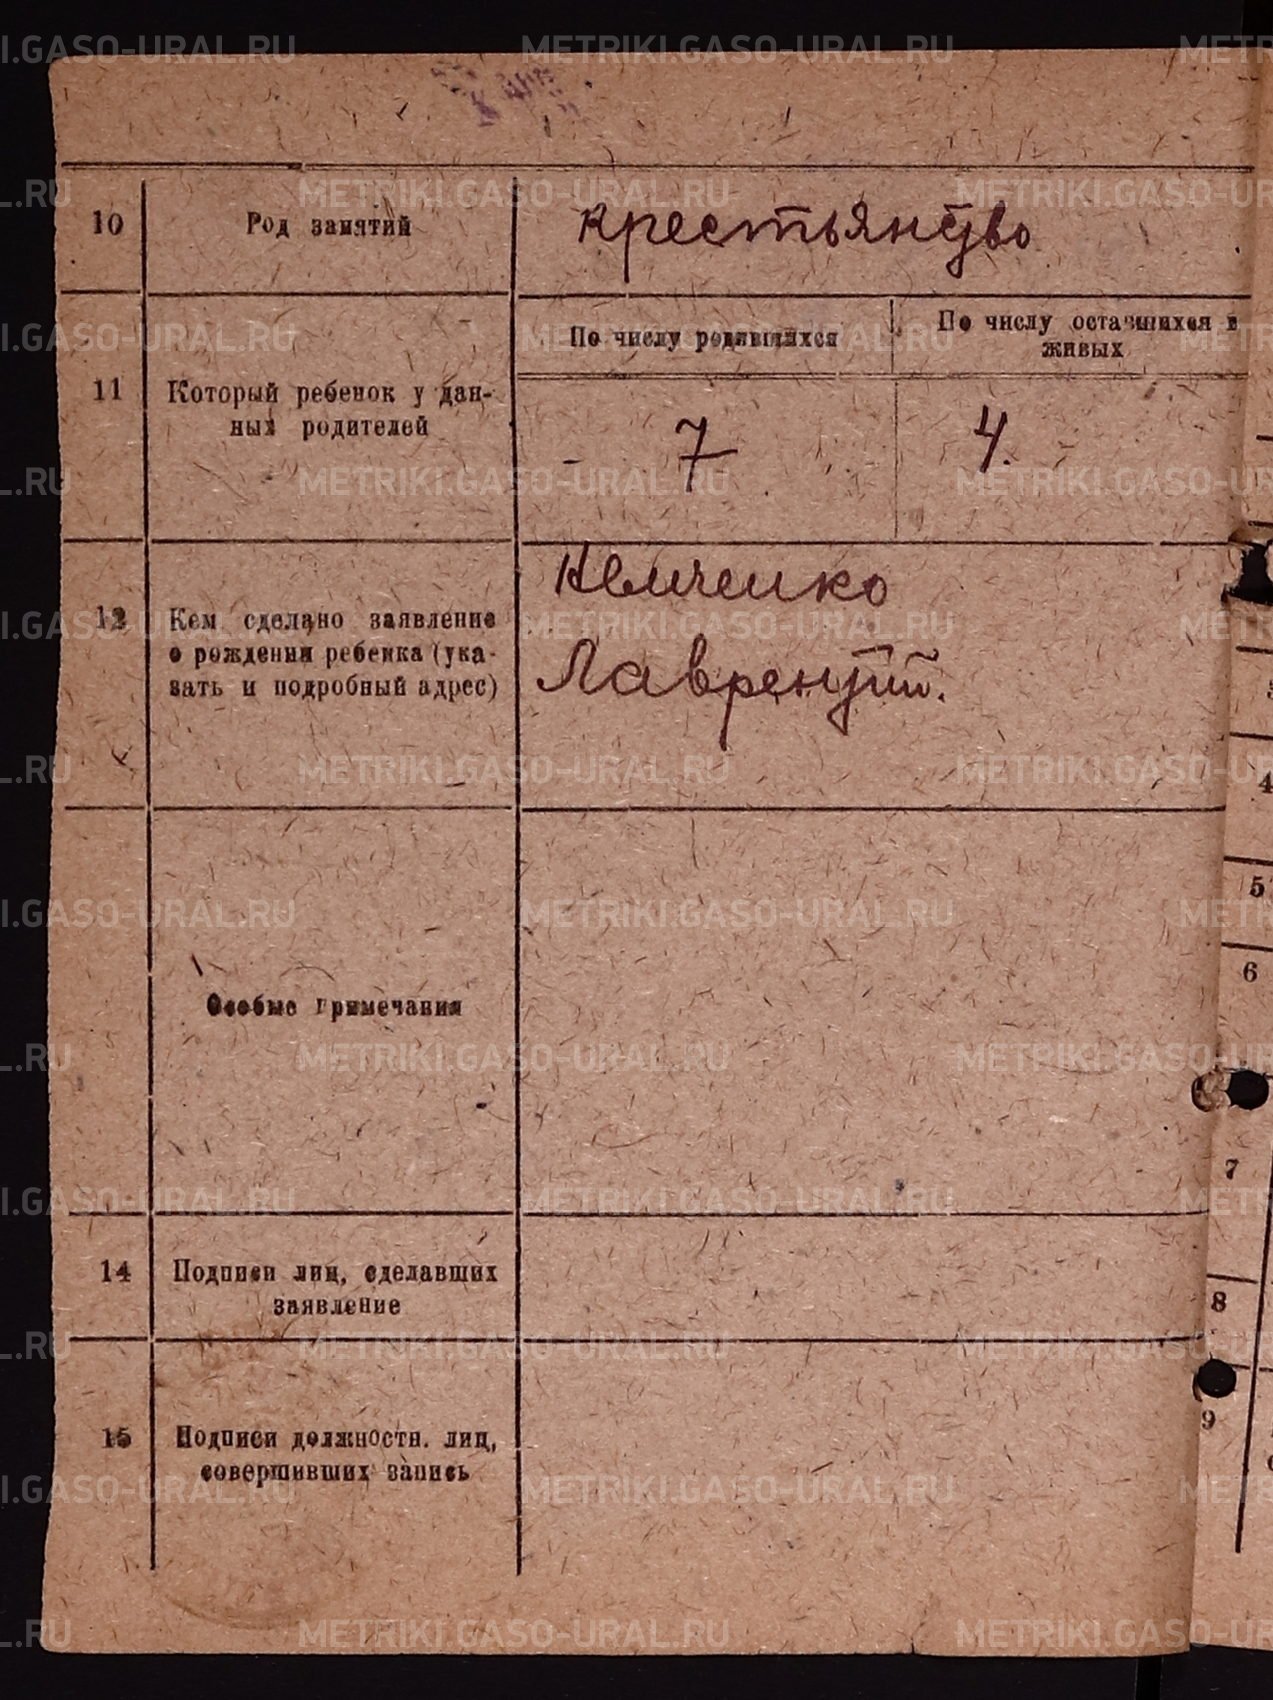 10
Род занятий
крестьянство
11
Который ребенок у дан-
ных родителей
По числу родившихся
По числу оставшихся в
живых
7
4.
12
Кем сделано заявление
о рождении ребенка (ука-
зать и подробный адрес)
Немченко
Лаврентий.
Особые примечания
14
Подписи лиц, сделавших
заявление
15
Подписи должностн. лиц,
совершивших запись
4
5
6
7
8
9
METRIKI.GASO-URAL.RU